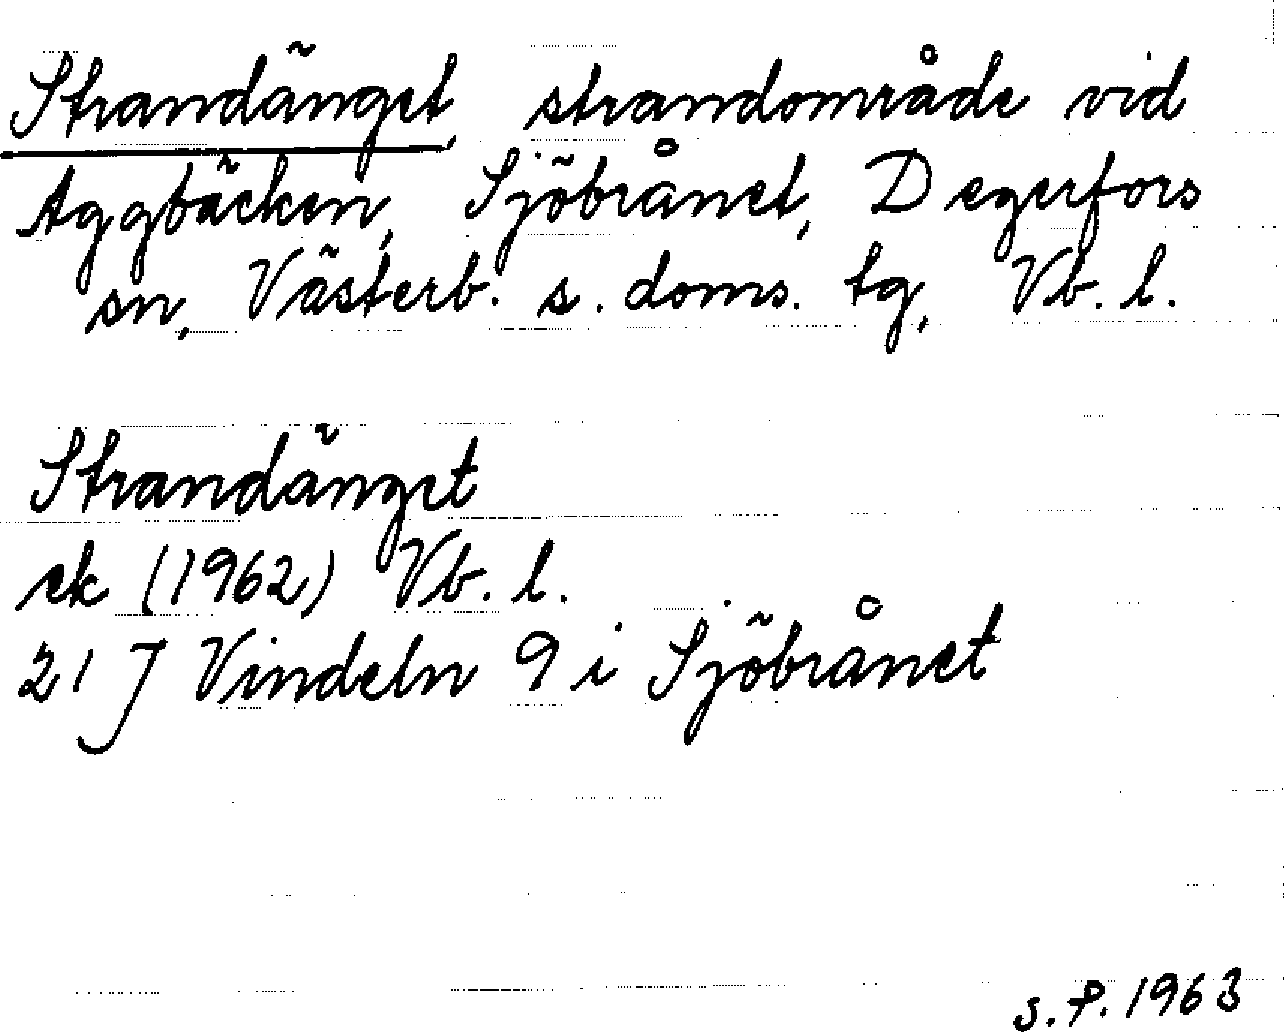 Strandänget, strandområde vid
Aggbäcken, Sjöbrånet, Degerfors
sn, Västerb. s. doms. tg, Vb. l.
Strandänget
ek (1962) Vb. l.
21 J Vindeln 9 i Sjöbrånet
S.P. 1963